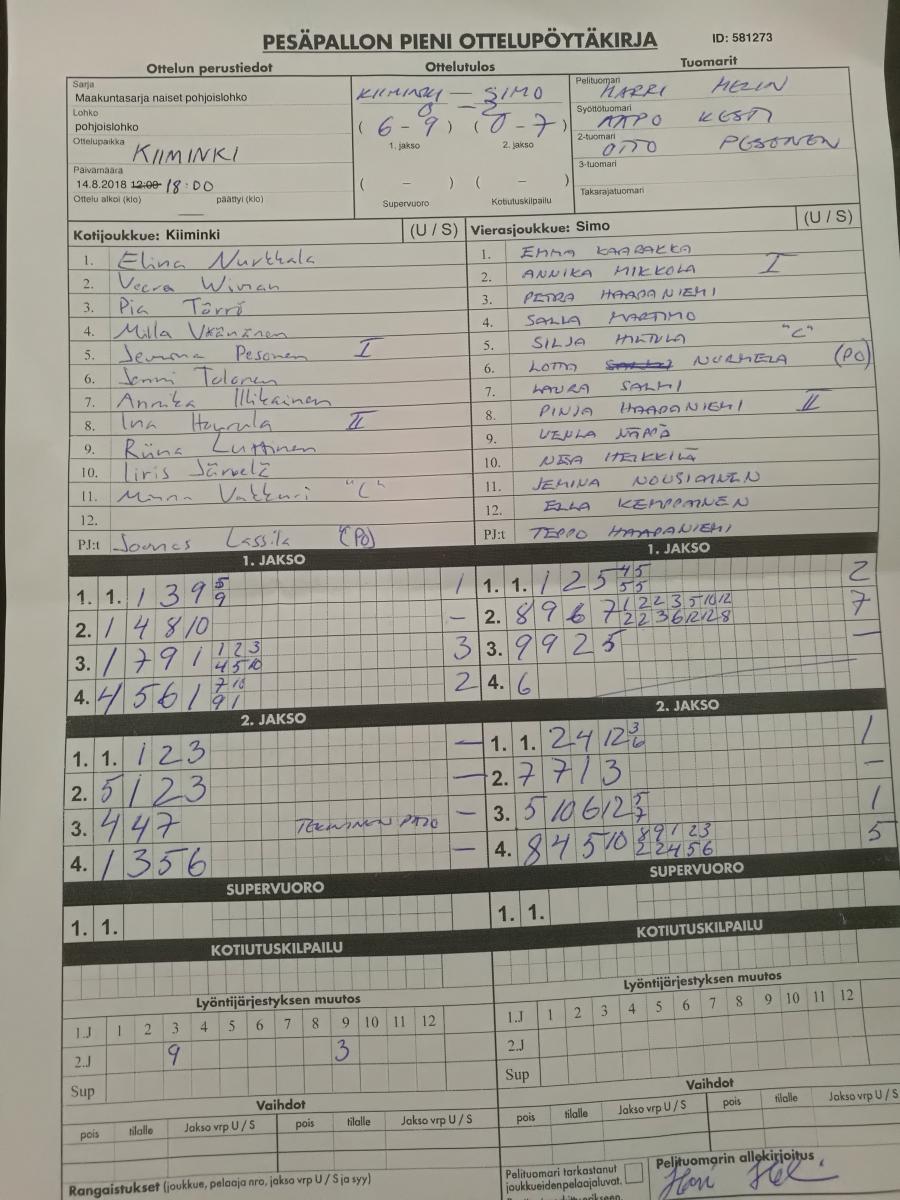 PESÄPALLON PIENI OTTELUPÖYTÄKIRJA ID: 581273
Ottelun perustiedot Ottelutulos Tuomarit
Sarja
Maakuntasarja naiset pohjoislohko
Lohko
pohjoislohko
Ottelupaikka KIIMINKI
Päivämäärä
14.8.2018 12:00 18:00
Ottelu alkoi (klo) päättyi (klo)
KIIMINKI — SIMO
0 - 2
( 6 - 9 ) ( 0 - 7 )
1. jakso 2. jakso
( - ) ( - )
Supervuoro Kotiutuskilpailu
Pelituomari HARRI HELIN
Syöttötuomari AAPO KESTI
2-tuomari OTTO PESONEN
3-tuomari
Takarajatuomari
Kotijoukkue: Kiiminki (U / S)
1. Elina Nurkkala
2. Veera Wiman
3. Pia Törrö
4. Milla
5. Jemma Pesonen I
6. Jenni Tolonen
7. Annika Illikainen
8. Ina II
9. Riina Luttinen
10. Iiris Järvelä
11. Minna Vakkuri "C"
12.
PJ:t Joonas Lassila (PO)
Vierasjoukkue: Simo (U / S)
1. EMMA KAARAKKA
2. ANNIKA MIKKOLA I
3. PETRA HAAPANIEMI
4. SALLA MARTIMO
5. SILJA HILTULA "C"
6. LOTTA NURMELA (PO)
7. LAURA SALMI
8. PINJA HAAPANIEMI II
9. VENLA NÄPPÄ
10. NEA HEIKKILÄ
11. JEMINA NOUSIAINEN
12. ELLA KEMPPAINEN
PJ:t TEPPO HAAPANIEMI
1. JAKSO
1. 1. 1 3 9 5 9 1
2. 1 4 8 10 —
3. 1 7 9 1 1 2 3 4 5 10 3
4. 4 5 6 1 7 10 9 1 2
1. JAKSO
1. 1. 1 2 5 4 5 5 5 2
2. 8 9 6 7 1 2 2 3 5 10 12 2 2 3 6 12 12 8 7
3. 9 9 2 5 —
4. 6
2. JAKSO
1. 1. 1 2 3 —
2. 5 1 2 3 —
3. 4 4 7 TEKNINEN PALO —
4. 1 3 5 6 —
2. JAKSO
1. 1. 2 4 12 3 6 1
2. 7 7 1 3 —
3. 5 10 6 12 5 7 1
4. 8 4 5 10 8 9 1 2 3 2 2 4 5 6 5
SUPERVUORO SUPERVUORO
1. 1. 1. 1.
KOTIUTUSKILPAILU KOTIUTUSKILPAILU
Lyöntijärjestyksen muutos Lyöntijärjestyksen muutos
1.J 1 2 3 4 5 6 7 8 9 10 11 12 1.J 1 2 3 4 5 6 7 8 9 10 11 12
2.J 9 3 2.J
Sup Sup
Vaihdot Vaihdot
pois tilalle Jakso vrp U / S pois tilalle Jakso vrp U / S pois tilalle Jakso vrp U / S pois tilalle Jakso vrp U / S
Rangaistukset (joukkue, pelaaja nro, jakso vrp U / S ja syy)
Pelituomari tarkastanut
joukkueidenpelaajaluvat.
Pelituomarin allekirjoitus